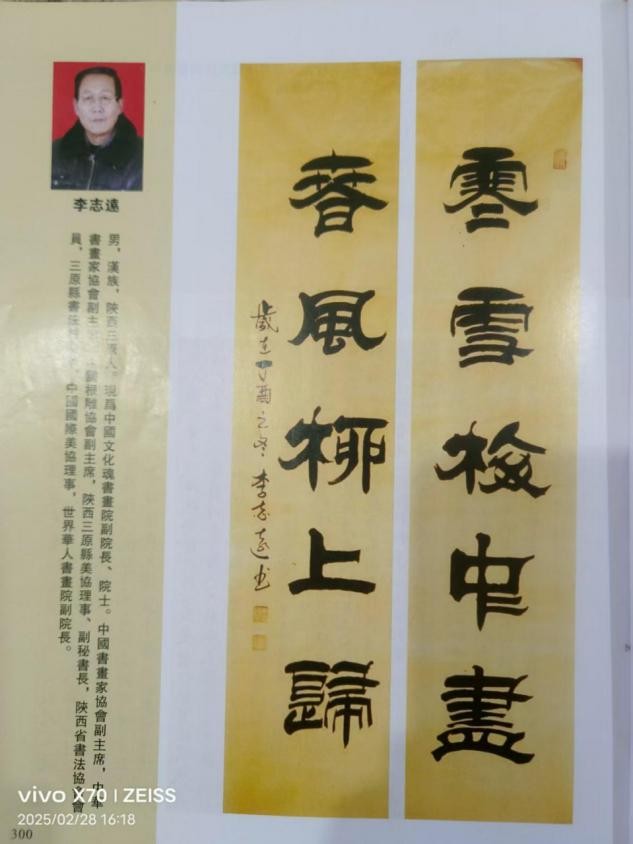 寒雪梅中盡
春風柳上歸
歲在丁酉之冬 李志遠書
李志遠
男，漢族，陝西三原人。現爲中國文化魂書畫院副院長、院士。中國書畫家協會副主席，中華
書畫家協會副主 根雕協會副主席，陝西三原縣美協理事、副秘書長，陝西省書法協 會
員，三原縣書 中國國際美協理事，世界華人書畫院副院長。
vivo X70 | ZEISS
2025/02/28 16:18
300